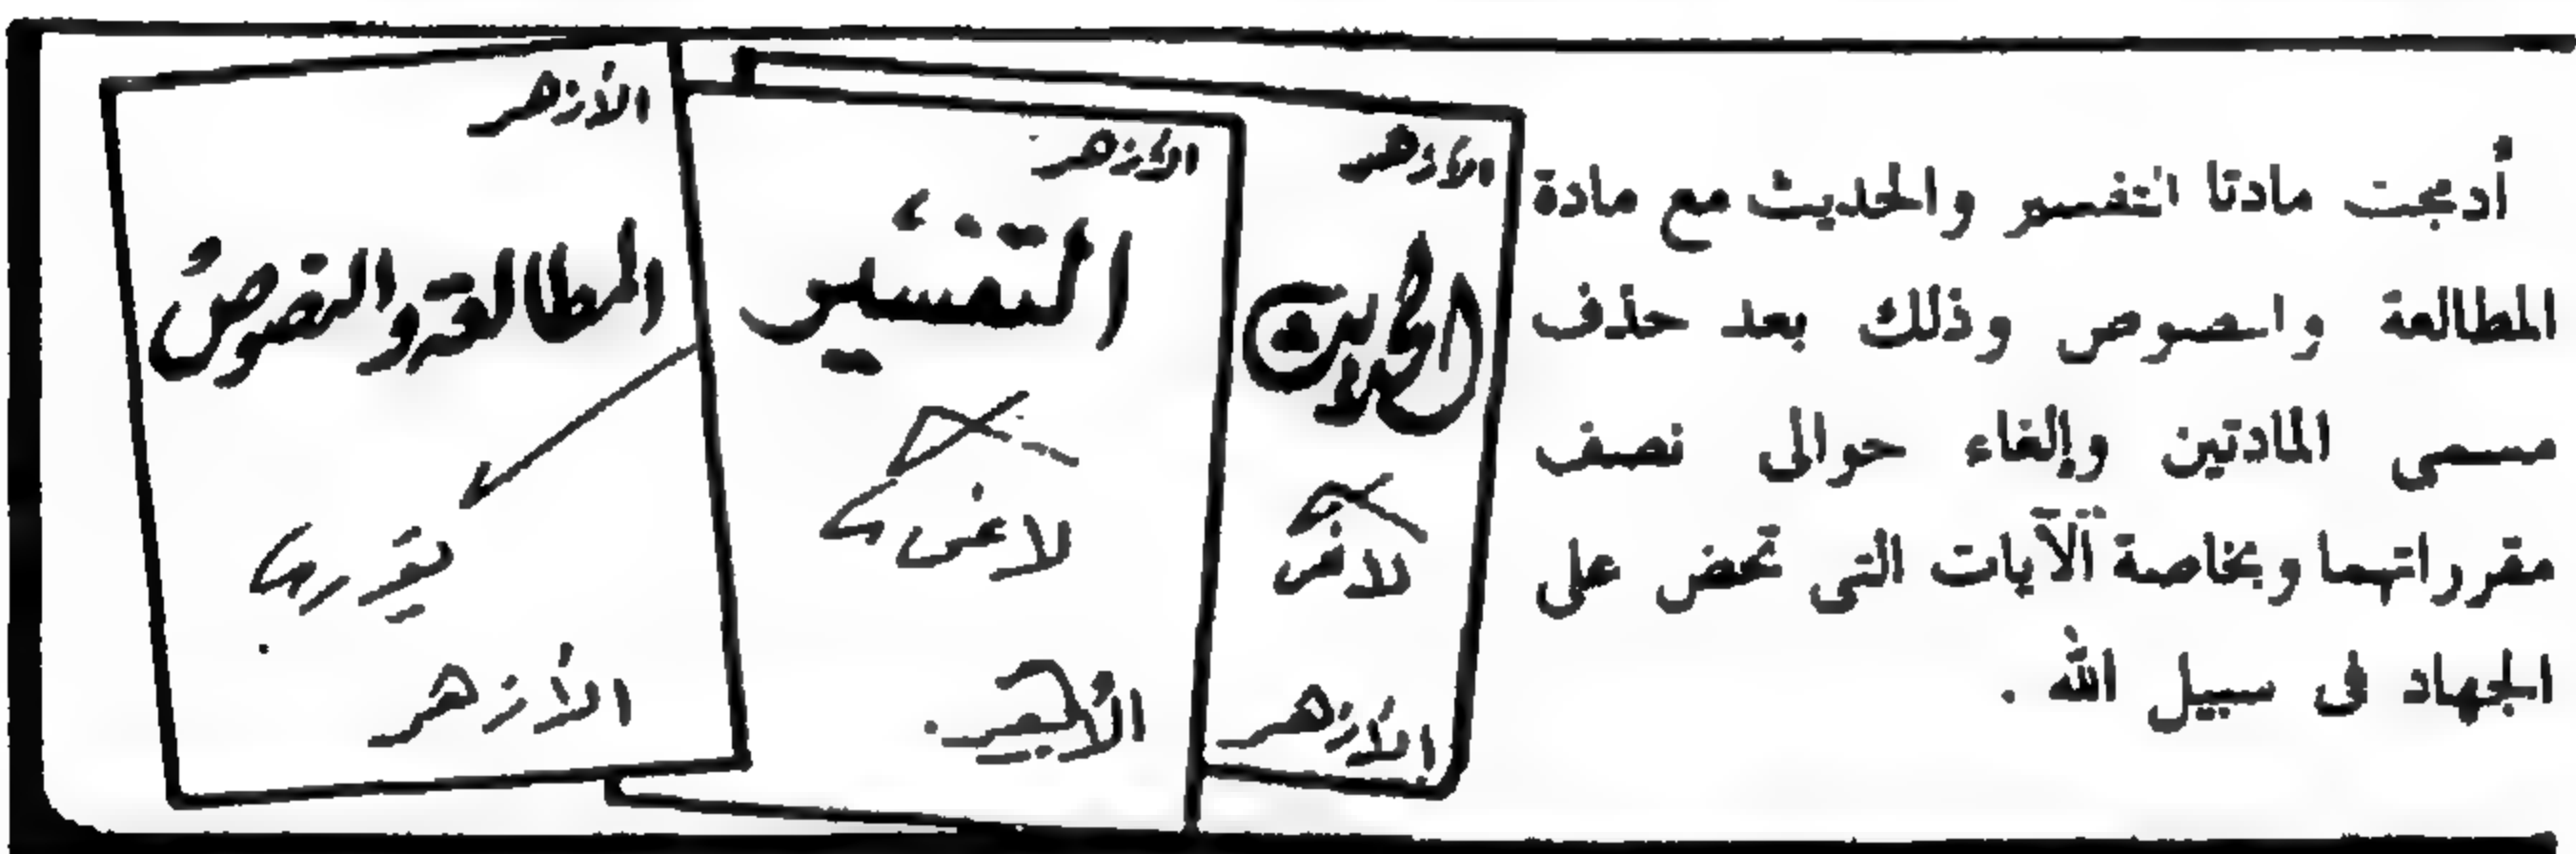 أدمجت مادتا التفسير والحديث مع مادة
المطالعة والنصوص وذلك بعد حذف
مسمى المادتين وإلغاء حوالى نصف
مقرراتهما وبخاصة الآيات التى تحض على
الجهاد فى سبيل الله .
الأزهر
الحديث
الأزهر
الأزهر
التفسير
الأزهر
المطالعة والنصوص
الأزهر